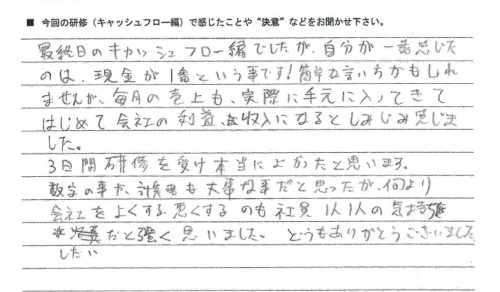 ■ 今回の研修（キャッシュフロー編）で感じたことや“決意”などをお聞かせ下さい。
最終日のキャッシュフロー編でしたが、自分が一番感じた
のは、現金が1番という事です!簡単な言い方かもしれ
ませんが、毎月の売上も、実際に手元に入ってきて
はじめて会社の利益、収入になるとしみじみ感じま
した。
3日間研修を受け本当によかったと思います。
数字の事や、計算も大事な事だと思ったが、何より
会社をよくする、悪くするのも社員1人1人の気持
だと強く思いました。どうもありがとうございました
したい